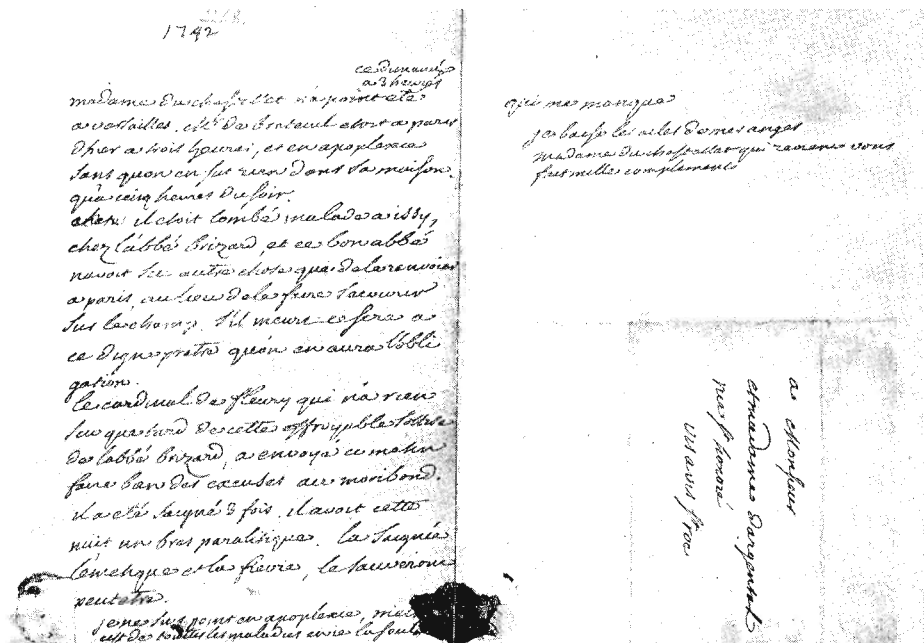 1742
ce dimanche
a 3 heures
madame du chastellet n'a point eté
a versailles. Mr de breteuil etoit a paris
d'hier a trois heures, et en apoplexie
sans quon en sut rien dans sa maison
qu'a cinq heures du soir.
il étoit tombé malade a issy,
chez l'abbé brizard, et ce bon abbé
navoit su autre chose que de le renvoier
a paris, au lieu de le faire secourir
sur le champ. S'il meurt ce sera a
ce digne pretre qu'on en aura l'obli
gation.
le cardinal de fleury qui n'a rien
su que tard de cette effroyable sottise
de l'abbé brizard, a envoyé ce matin
faire des excuses au moribond.
il a eté saigné 3 fois. il avoit cette
nuit un bras paralitique. la saignée
l'emetique et la fievre, le sauveront
peutetre.
je ne suis point en apoplexie, mais
est de touttes les maladies
qui me manque
je baise les ailes de mes anges
madame du chastellet qui vous
fait mille compliments
a Monsieur
et madame dargental
rue st honoré
vis a vis st roc